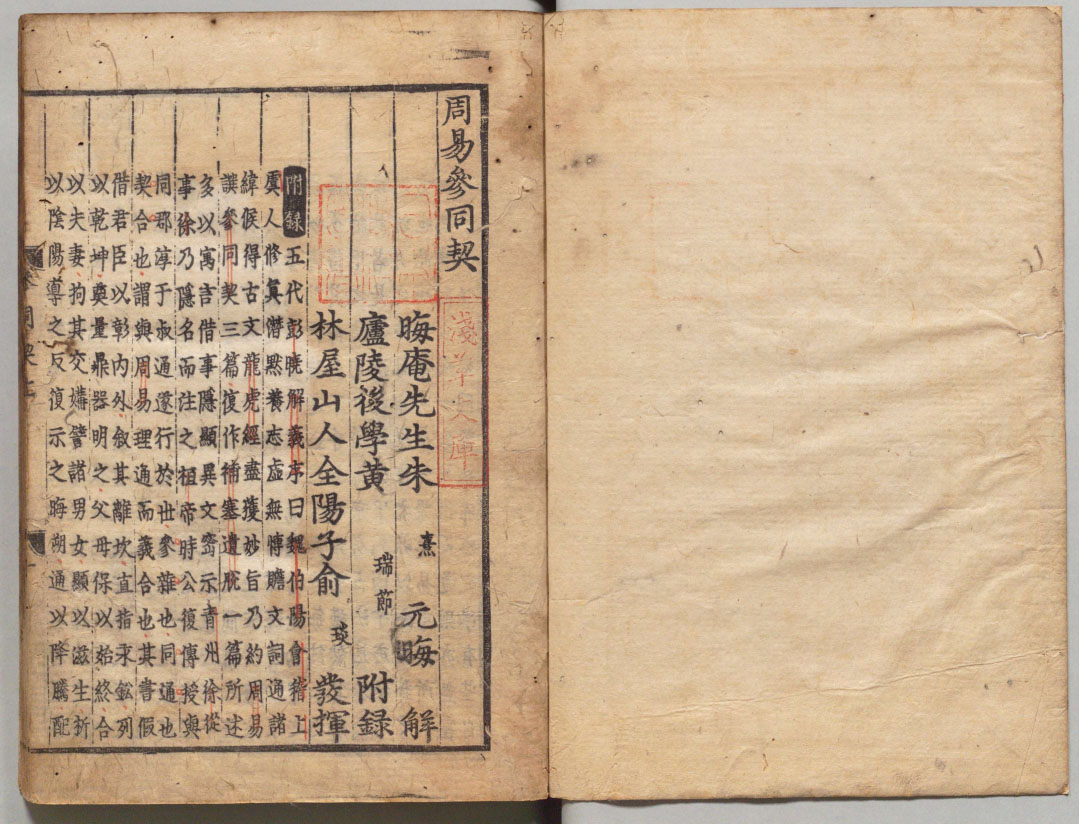 周易參同契
晦庵先生朱熹元晦解
廬陵後學黄瑞節附録
林屋山人全陽子俞琰發揮
附録五代彭曉解義序曰魏伯陽會稽上
虞人修真潛默養志虛無博贍文詞通諸
緯候得古文龍虎經盡獲妙旨乃約周易
譔參同契三篇復作補塞遺脫一篇所述
多以寓言借事隱顯異文宻示青州徐從
事徐乃隱名而注之桓帝時公復傳授與
同郡淳于叔通遂行於世參雜也同通也
契合也謂與周易理通而義合也其書假
借君臣以彰内外叙其離坎直指汞鈆列
以乾坤奠量鼎器明之父母保以始終合
以夫妻拘其交媾譬諸男女顯以滋生析
以陰陽導之反復示之晦朔通以降騰配
淺草文庫